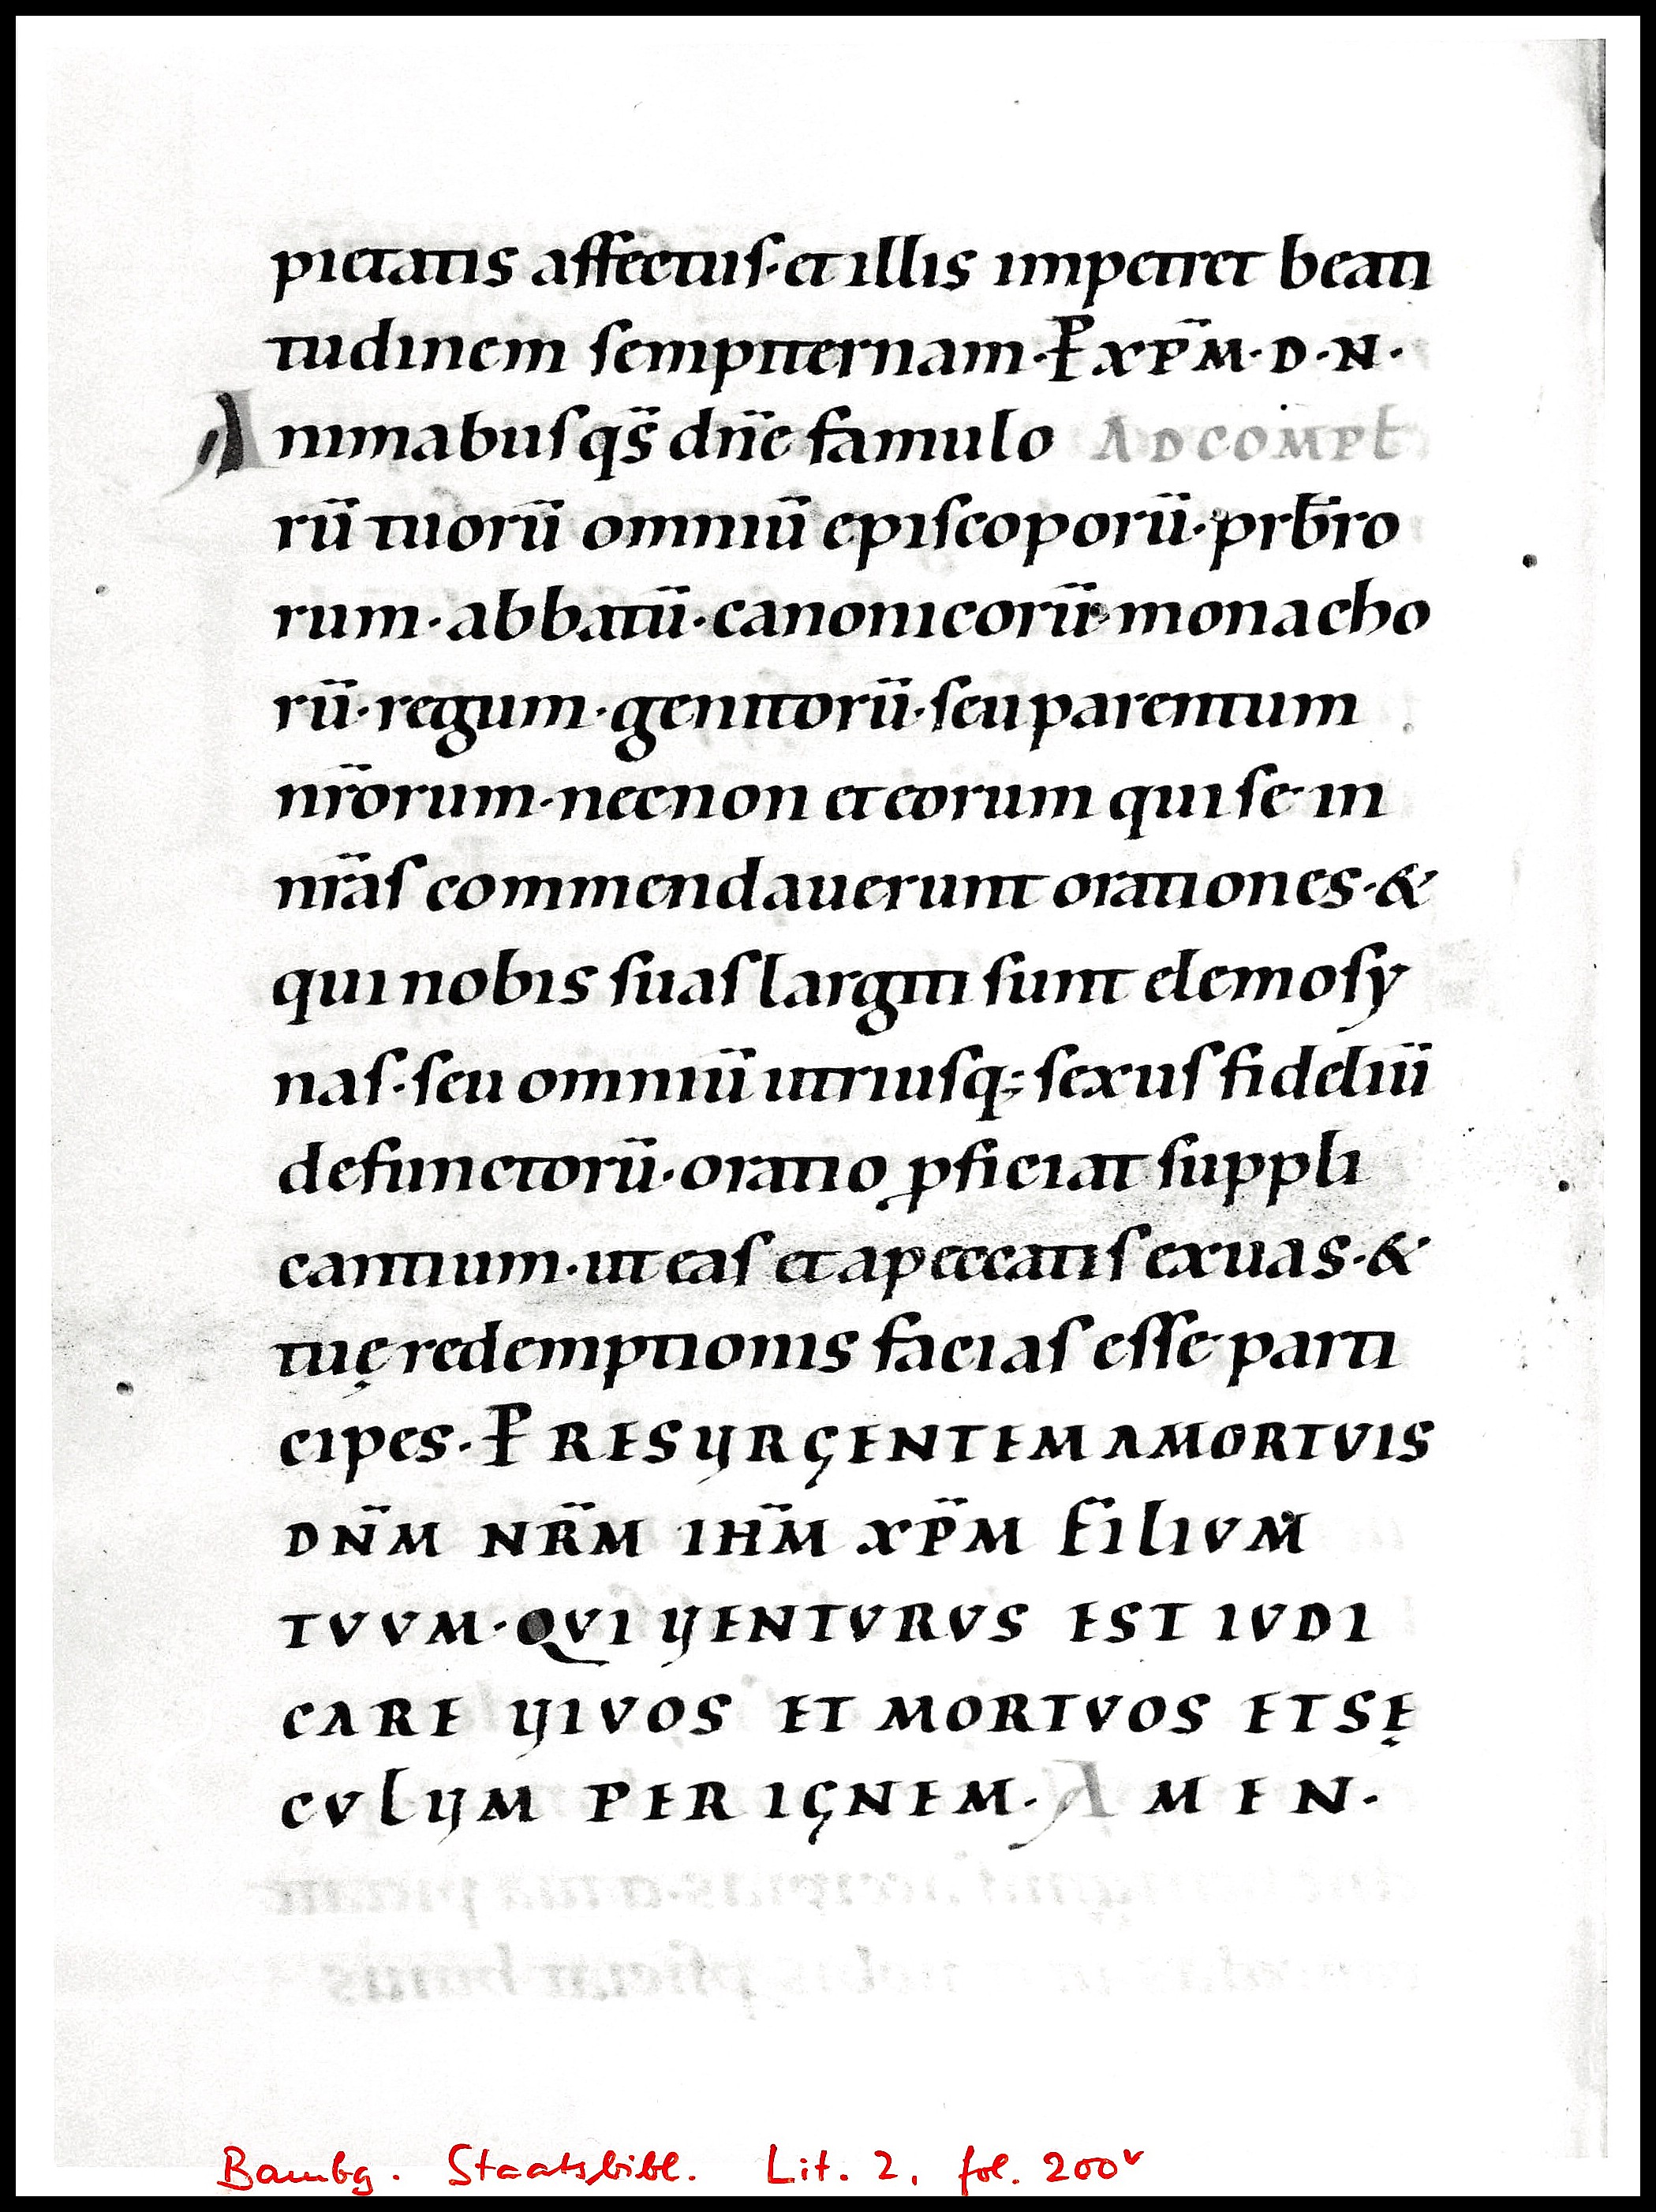 pietatis affectus· et illis impetret beati
tudinem sempiternam· P̄ xp̄m· D· N·
Animabus qs̄ dn̄e famulo AD COMPL̄
rū tuorū omniū episcoporū· prb̄ro
rum· abbatū· canonicorū· monacho
rū· regum· genitorū· seu parentum
nr̄orum· necnon et eorum qui se in
nr̄as commendauerunt orationes· &
qui nobis suas largiti sunt elemosy
nas· seu omniū utriusq; sexus fideliū
defunctorū· oratio ꝓficiat suppli
cantium· ut eas et a peccatis exuas· &
tuę redemptionis facias esse parti
cipes· P̄ RESURGENTEM A MORTVIS
DN̄M NR̄M IHM̄ XP̄M FILIVM
TVVM· QVI VENTVRVS EST IVDI
CARE VIVOS ET MORTVOS ET SĘ
CVLVM PER IGNEM· AMEN·
Bambg. Staatsbibl. Lit. 2, fol. 200v